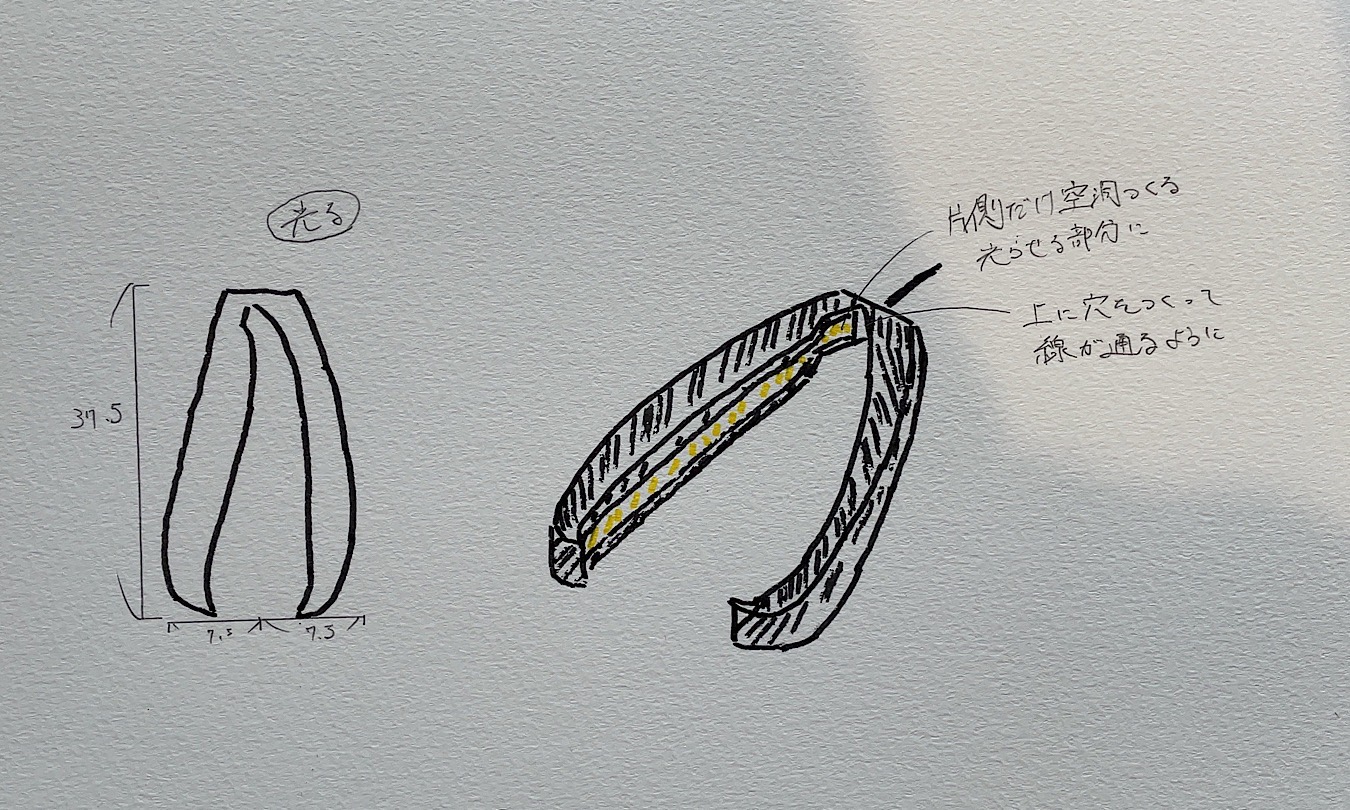 光る
37.5
7.5
7.5
片側だけ空洞つくる
光らせる部分に
上に穴をつくって
線が通るように